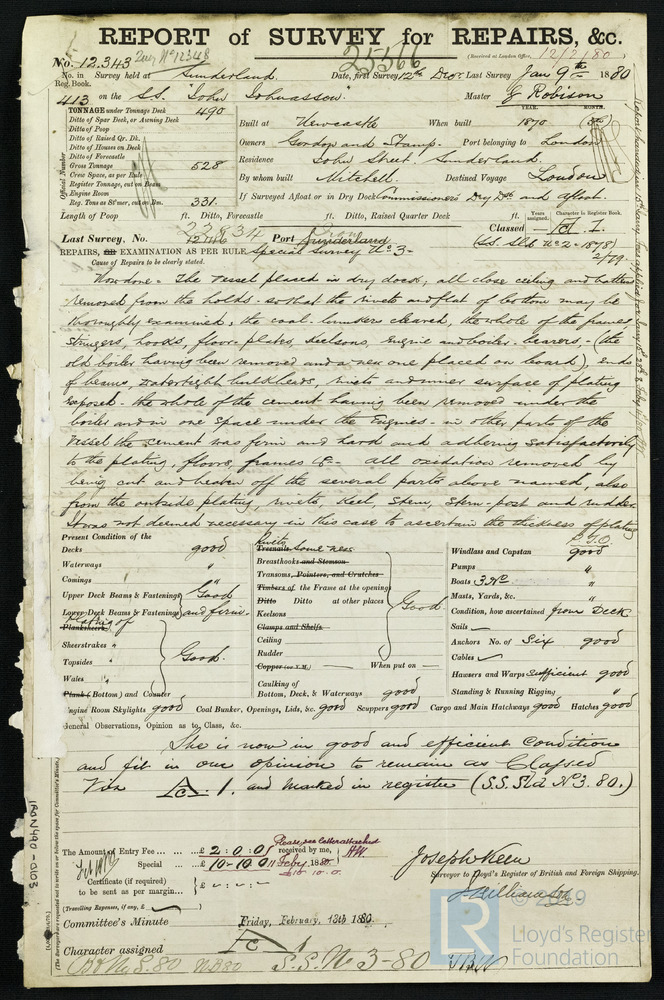 REPORT of SURVEY for REPAIRS, &c.
No. 12343
25566
(Received at London Office, 12/2/80)
No. in Reg. Book. Survey held at Sunderland. Date, first Survey 12th Decr. Last Survey Jany 9th 1880
413 on the S.S. "John Johnasson" Master G Robison
TONNAGE under Tonnage Deck 490
Ditto of Spar Deck, or Awning Deck
Ditto of Poop
Ditto of Raised Qr. Dk.
Ditto of Houses on Deck
Ditto of Forecastle
Gross Tonnage 528
Crew Space, as per Rule
Register Tonnage, cut on Beam
Engine Room
Reg. Tons as St'mer, cut on Bm. 331.
Official Number
YEAR. MONTH.
Built at Newcastle When built 1870
Owners Gordon and Stamp. Port belonging to London
Residence John Street, Sunderland.
By whom built Mitchell. Destined Voyage London
If Surveyed Afloat or in Dry Dock Commissioners Dry Dk and afloat.
Length of Poop ft. Ditto, Forecastle ft. Ditto, Raised Quarter Deck ft.
Years assigned. Character in Register Book.
Last Survey, No. 12146 Port Sunderland Classed A 1.
22834 Iron
(S.S. Sld. No 2 - 1878)
2/79.
REPAIRS, OR EXAMINATION AS PER RULE Special Survey No 3 -
Cause of Repairs to be clearly stated.
Now done - The vessel placed in dry dock, all close ceiling and battens
removed from the holds - so that the rivets and flat of bottom may be
thoroughly examined, the coal-bunkers cleared, the whole of the frames
stringers, hooks, floor-plates, keelsons, engine and boiler-bearers, - (the
old boiler having been removed and a new one placed on board), ends
of beams, watertight bulkheads, rivets and inner surface of plating
exposed - the whole of the cement having been removed under the
boiler and in one space under the Engines - in other parts of the
vessel the cement was firm and hard and adhering satisfactorily
to the plating, floors, frames &c - all oxidation removed by
being cut and beaten off the several parts above named, also
from the outside plating, rivets, keel, stem, stern-post and rudder.
It was not deemed necessary in this case to ascertain the thickness of plating
P.T.O.
Present Condition of the
Decks good
Waterways "
Comings "
Upper Deck Beams & Fastenings Good
Lower Deck Beams & Fastenings and firm
Planksheers Plating of
Sheerstrakes "
Topsides Good.
Wales "
Plank (Bottom) and Counter
Rivets
Treenails Some new
Breasthooks and Stemson
Transoms, Pointers, and Crutches
Timbers of the Frame at the openings
Ditto Ditto at other places Good
Keelsons
Clamps and Shelfs
Ceiling
Rudder
Copper (or Y.M.) When put on
Caulking of
Bottom, Deck, & Waterways good
Windlass and Capstan good
Pumps "
Boats 3 No "
Masts, Yards, &c. "
Condition, how ascertained from Deck
Sails
Anchors No. of Six good
Cables
Hawsers and Warps sufficient good
Standing & Running Rigging "
Engine Room Skylights good Coal Bunker, Openings, Lids, &c. good Scuppers good Cargo and Main Hatchways good Hatches good
General Observations, Opinion as to Class, &c.
She is now in good and efficient condition
and fit in our opinion to remain as Classed
Viz A. 1. and marked in register (S.S. Sld No 3. 80.)
The Amount of Entry Fee ... £ 2 : 0 : 0
Special ... £ 10 - 10 . 0
received by me,
Please see letter attached
11 Feby. 1880
£10 10. 0.
Certificate (if required)
to be sent as per margin...
(Travelling Expenses, if any, £ )
Joseph Keen
Surveyor to Lloyd's Register of British and Foreign Shipping.
Committee's Minute Friday, February 13th 1880.
Character assigned A 1
B&MS.80 NB80 S.S. No 3-80
IRON490-0103
LR
© 2019
Lloyd's Register
Foundation